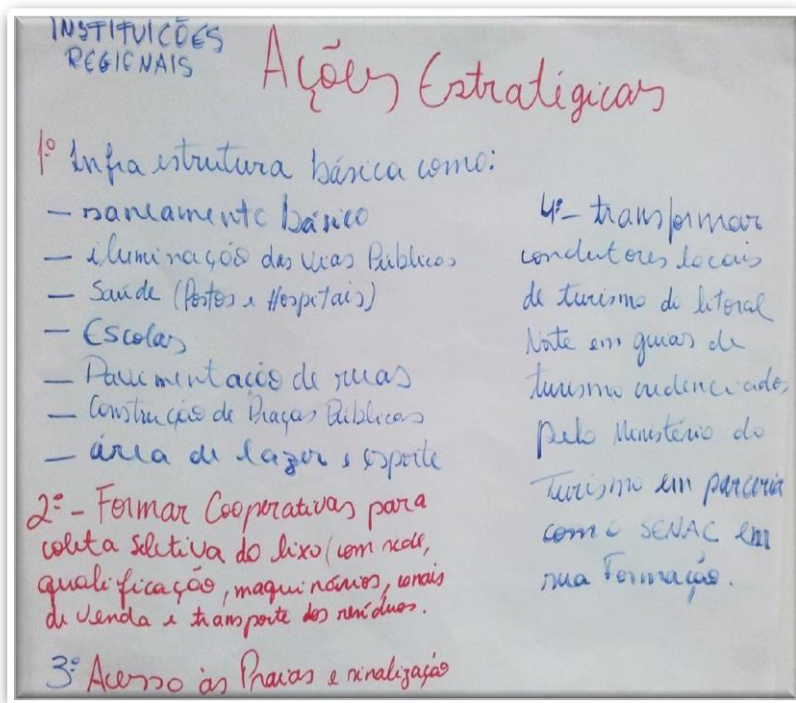 INSTITUIÇÕES
REGIONAIS
Ações Estratégicas
1º Infra estrutura básica como:
— saneamento básico
— iluminação das vias Públicas
— Saúde (Postos e Hospitais)
— Escolas
— Pavimentação de ruas
— Construção de Praças Públicas
— área de lazer e esporte
2º - Formar Cooperativas para
coleta Seletiva do lixo (com sede,
qualificação, maquinários, canais
de venda e transporte dos resíduos.
3º Acesso às Praias e sinalização
4º - transformar
condutores locais
de turismo do litoral
Norte em guias de
turismo credenciados
pelo Ministério do
Turismo em parceria
com o SENAC em
sua Formação.